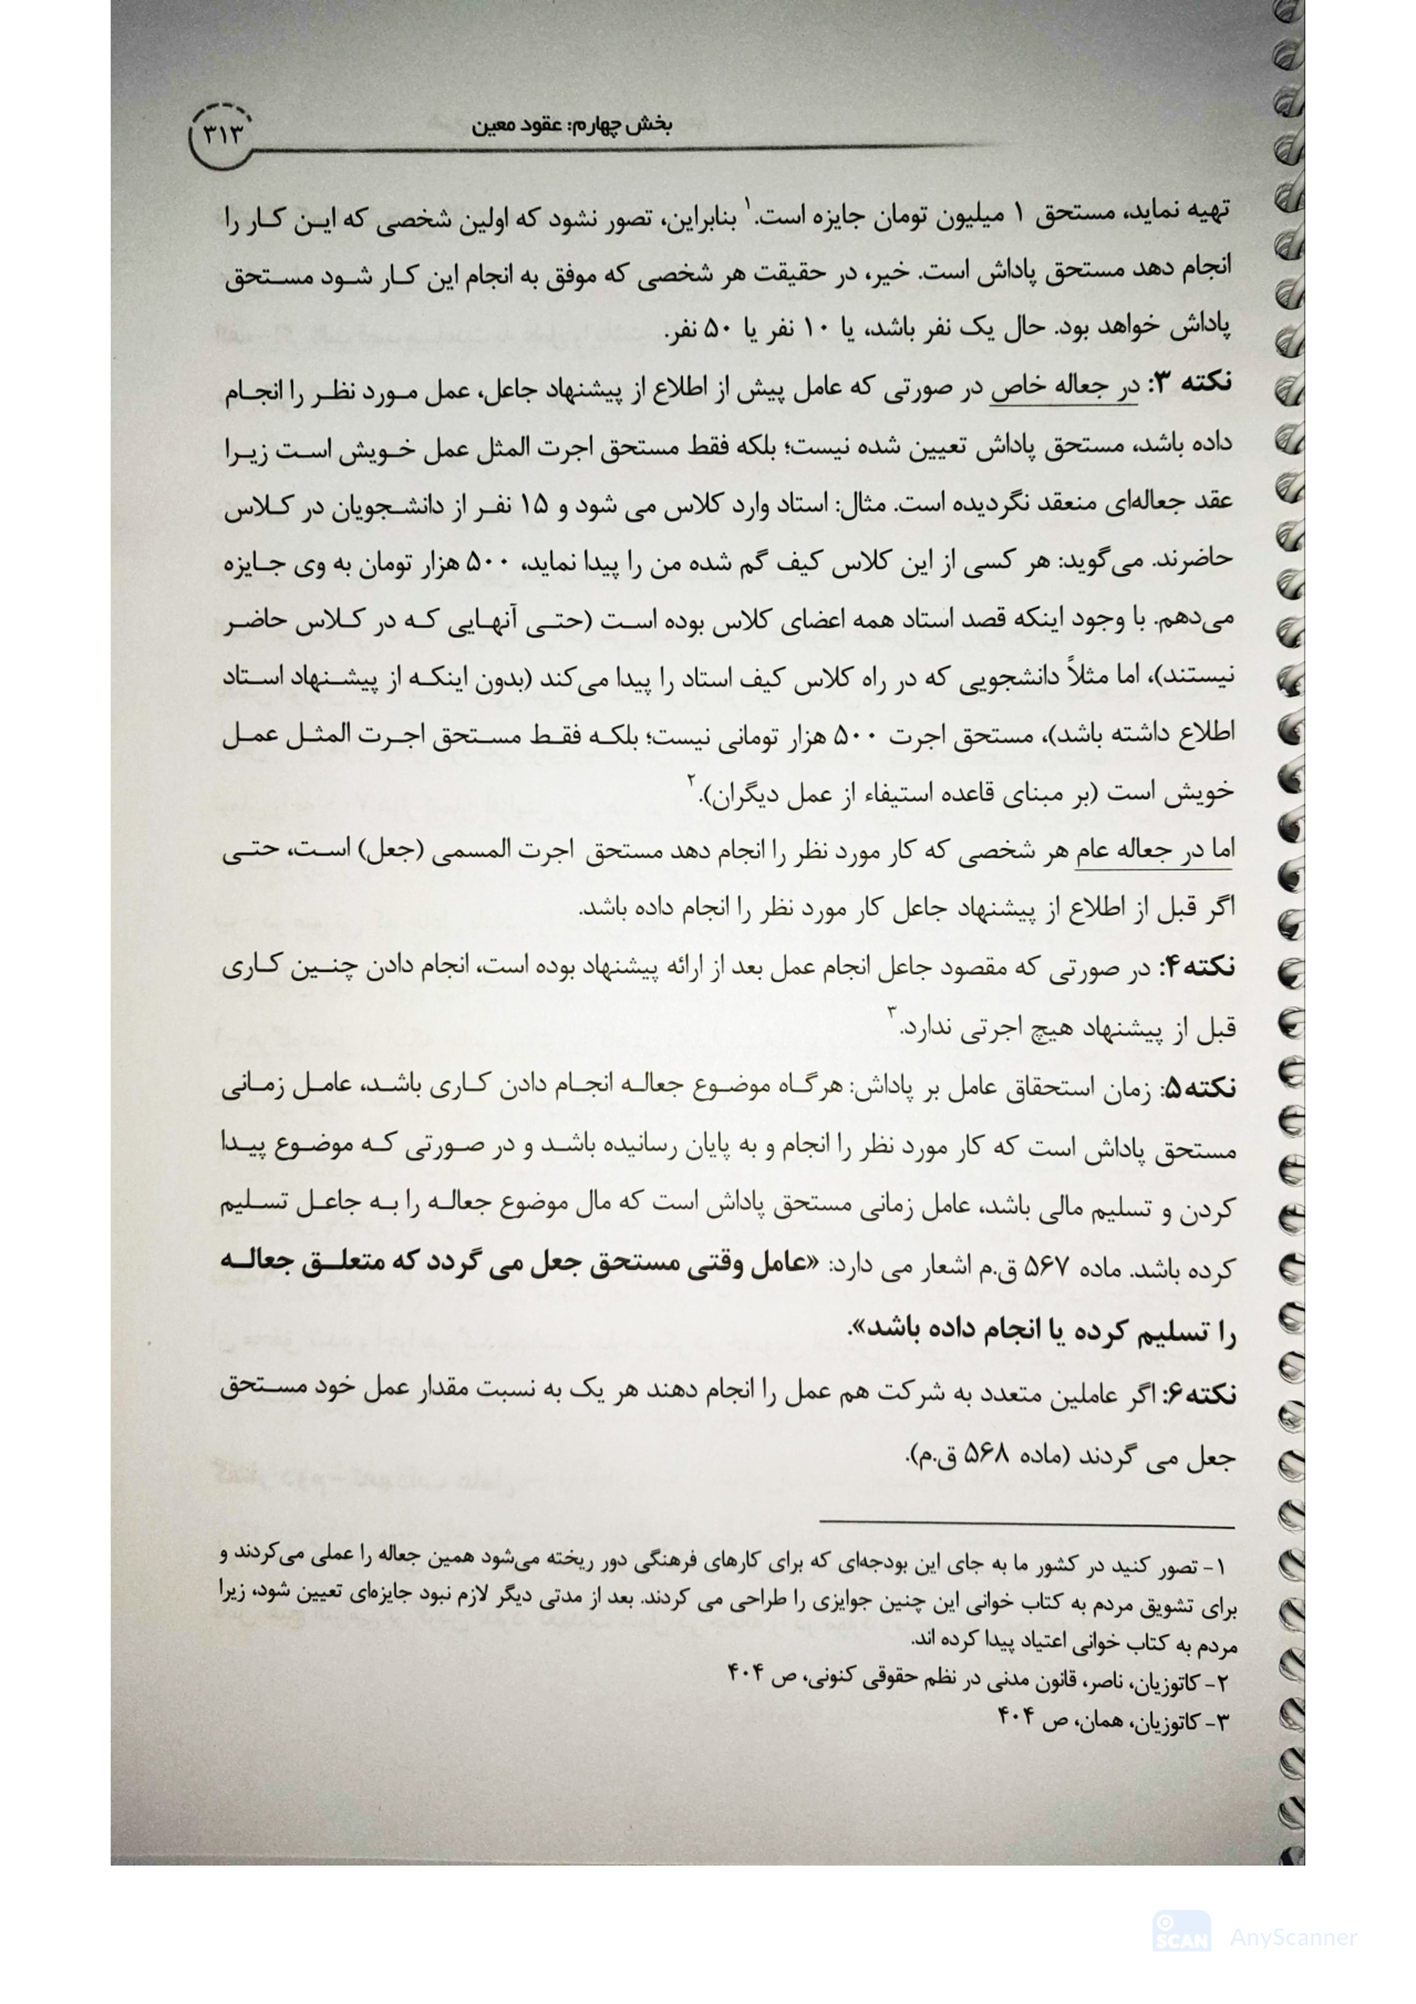 بخش چهارم: عقود معین
۳۱۳
تهیه نماید، مستحق ۱ میلیون تومان جایزه است.۱ بنابراین، تصور نشود که اولین شخصی که ایـن کـار را
انجام دهد مستحق پاداش است. خیر، در حقیقت هر شخصی که موفق به انجام این کـار شـود مسـتحق
پاداش خواهد بود. حال یک نفر باشد، یا ۱۰ نفر یا ۵۰ نفر.
نکته ۳: در جعاله خاص در صورتی که عامل پیش از اطلاع از پیشنهاد جاعل، عمل مـورد نظـر را انجـام
داده باشد، مستحق پاداش تعیین شده نیست؛ بلکه فقط مستحق اجرت المثل عمل خـویش اسـت زیـرا
عقد جعاله‌ای منعقد نگردیده است. مثال: استاد وارد کلاس می شود و ۱۵ نفـر از دانشـجویان در کـلاس
حاضرند. می‌گوید: هر کسی از این کلاس کیف گم شده من را پیدا نماید، ۵۰۰ هزار تومان به وی جـایزه
می‌دهم. با وجود اینکه قصد استاد همه اعضای کلاس بوده اسـت (حتـی آنهـایی کـه در کـلاس حاضـر
نیستند)، اما مثلاً دانشجویی که در راه کلاس کیف استاد را پیدا می‌کند (بدون اینکـه از پیشـنهاد اسـتاد
اطلاع داشته باشد)، مستحق اجرت ۵۰۰ هزار تومانی نیست؛ بلکـه فقـط مسـتحق اجـرت المثـل عمـل
خویش است (بر مبنای قاعده استیفاء از عمل دیگران).۲
اما در جعاله عام هر شخصی که کار مورد نظر را انجام دهد مستحق اجرت المسمی (جعل) اسـت، حتـی
اگر قبل از اطلاع از پیشنهاد جاعل کار مورد نظر را انجام داده باشد.
نکته۴: در صورتی که مقصود جاعل انجام عمل بعد از ارائه پیشنهاد بوده است، انجام دادن چنـین کـاری
قبل از پیشنهاد هیچ اجرتی ندارد.۳
نکته۵: زمان استحقاق عامل بر پاداش: هرگـاه موضـوع جعالـه انجـام دادن کـاری باشـد، عامـل زمـانی
مستحق پاداش است که کار مورد نظر را انجام و به پایان رسانیده باشـد و در صـورتی کـه موضـوع پیـدا
کردن و تسلیم مالی باشد، عامل زمانی مستحق پاداش است که مال موضوع جعالـه را بـه جاعـل تسـلیم
کرده باشد. ماده ۵۶۷ ق.م اشعار می دارد: «عامل وقتی مستحق جعل می گردد که متعلـق جعالـه
را تسلیم کرده یا انجام داده باشد».
نکته۶: اگر عاملین متعدد به شرکت هم عمل را انجام دهند هر یک به نسبت مقدار عمل خود مسـتحق
جعل می گردند (ماده ۵۶۸ ق.م).
۱- تصور کنید در کشور ما به جای این بودجه‌ای که برای کارهای فرهنگی دور ریخته می‌شود همین جعاله را عملی می‌کردند و
برای تشویق مردم به کتاب خوانی این چنین جوایزی را طراحی می کردند. بعد از مدتی دیگر لازم نبود جایزه‌ای تعیین شود، زیرا
مردم به کتاب خوانی اعتیاد پیدا کرده اند.
۲- کاتوزیان، ناصر، قانون مدنی در نظم حقوقی کنونی، ص ۴۰۴
۳- کاتوزیان، همان، ص ۴۰۴
SCAN AnyScanner